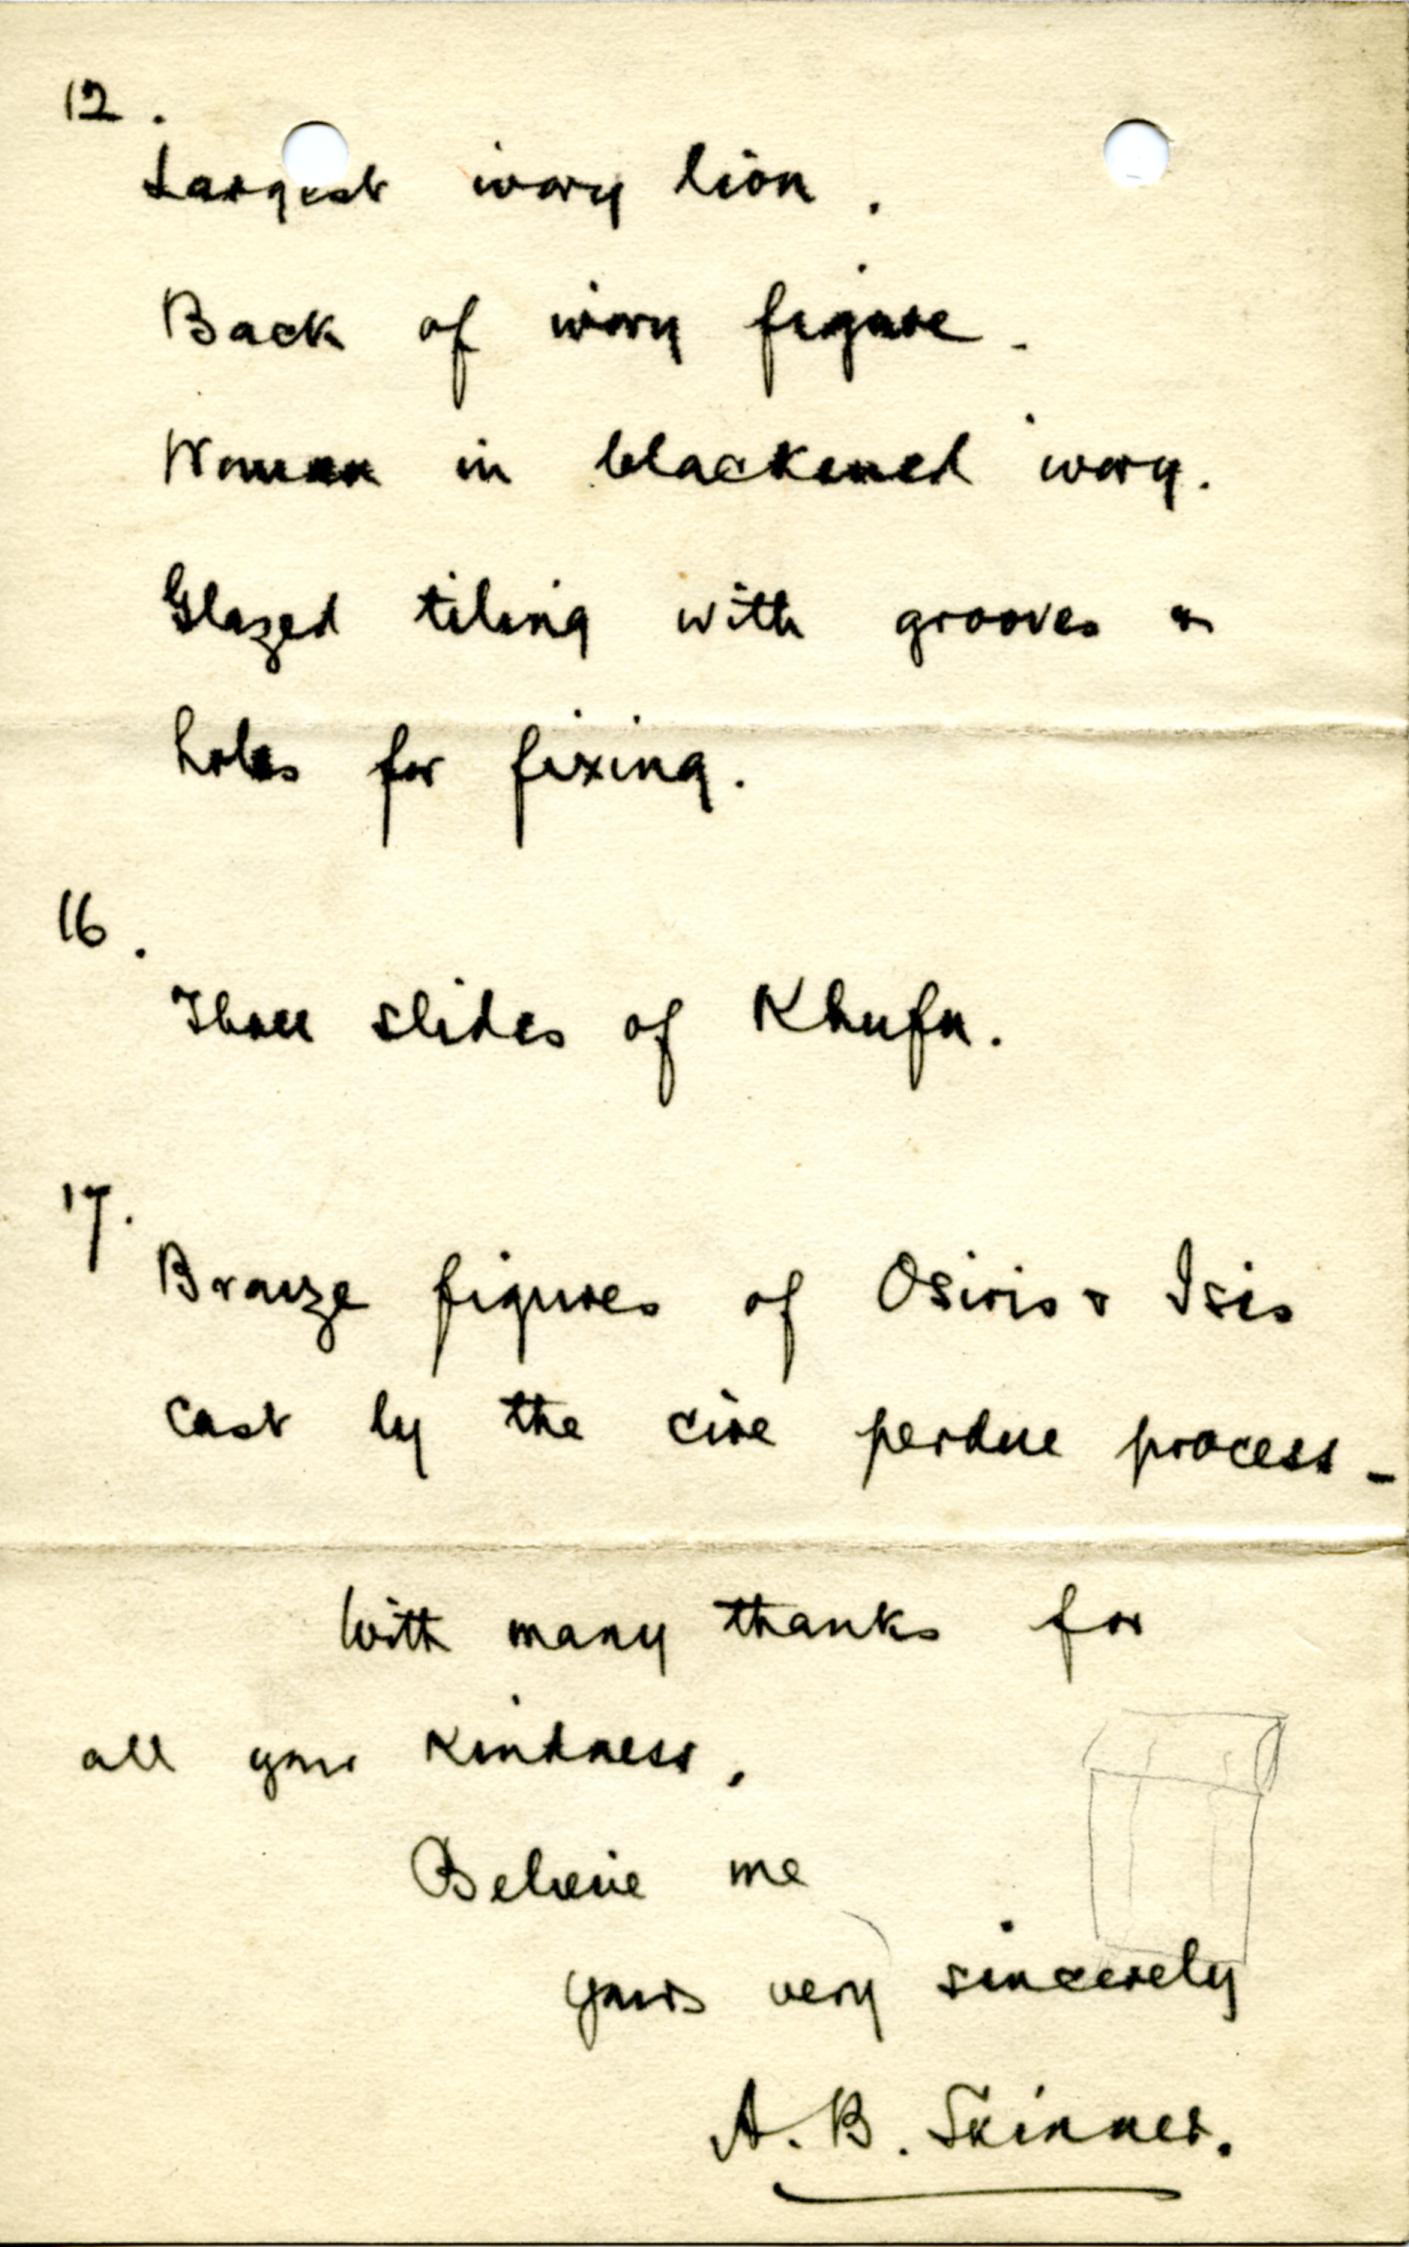 12.
Largest ivory lion.
Back of ivory figure.
Woman in blackened ivory.
Glazed tiling with grooves &
holes for fixing.
16.
Three slides of Khufu.
17.
Bronze figures of Osiris & Isis
cast by the cire perdue process.
With many thanks for
all your kindness,
Believe me
yours very sincerely
A. B. Skinner.